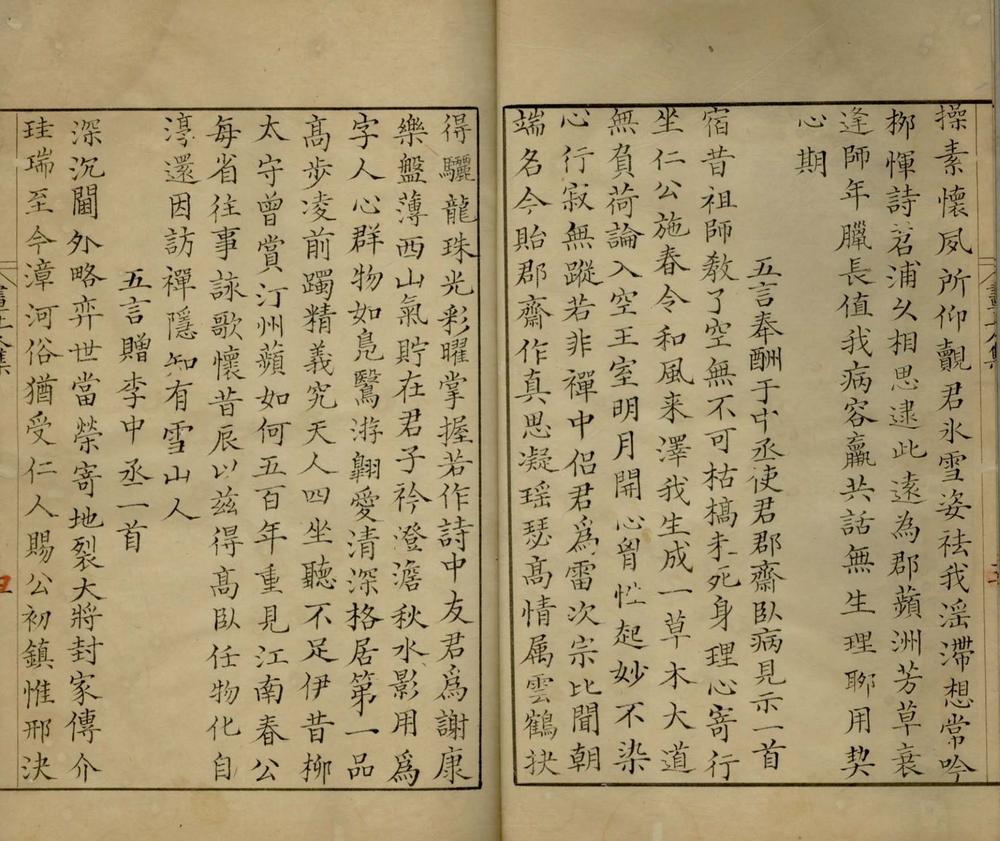 操素懷夙所仰覿君氷雪姿祛我滛滯想常吟
栁惲詩苕浦乆相思逮此遠為郡蘋洲芳草衰
逢師年臘長值我病容羸共話無生理聊用契
心期
五言奉酬于中丞使君郡齋臥病見示一首
宿昔祖師教了空無不可枯槁未死身理心寄行
坐仁公施春令和風来澤我生成一草木大道
無負荷論入空王室明月開心胷性起妙不染
心行寂無蹤若非禪中侶君爲雷次宗比聞朝
端名今貽郡齋作真思凝瑶瑟高情属雲鶴抉
得驪龍珠光彩曜掌握若作詩中友君爲謝康
樂盤薄西山氣貯在君子衿澄澹秋水影用爲
字人心群物如鳬鷖游翺愛清深格居第一品
高步凌前躅精義究天人四坐聽不足伊昔柳
太守曾賞汀州蘋如何五百年重見江南春公
每省往事詠歌懷昔辰以兹得高臥任物化自
淳還因訪禪隱知有雪山人
五言贈李中丞一首
深沉閫外略弈世當榮寄地裂大將封家傳介
珪瑞至今漳河俗猶受仁人賜公初鎮惟邢決